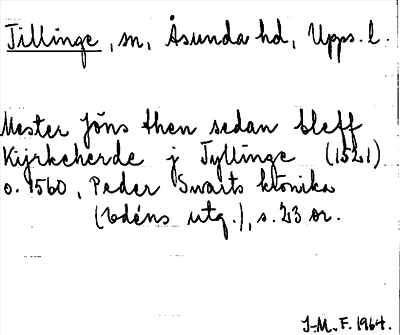 Tillinge, sn, Åsunda hd, Upps. l.
Mester Jöns then sedan bleff
Kijrkeherde j Tyllinge (1521)
o. 1560, Peder Swarts krönika
(Edéns utg.), s. 23 or.
J-M. F. 1964.